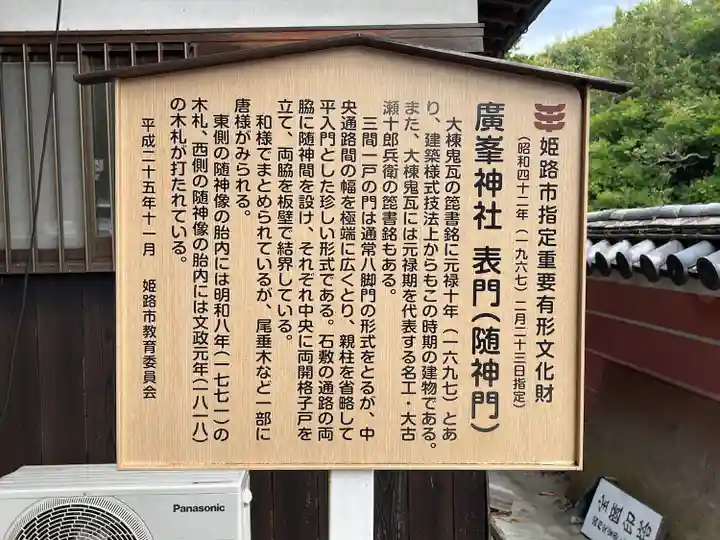 姫路市指定重要有形文化財
(昭和四十二年(一九六七)二月二十三日指定)
廣峯神社 表門(随神門)
大棟鬼瓦の箆書銘に元禄十年(一六九七)とあ
り、建築様式技法上からもこの時期の建物である。
また、大棟鬼瓦には元禄期を代表する名工・大古
瀬十郎兵衛の箆書銘もある。
三間一戸の門は通常八脚門の形式をとるが、中
央通路間の幅を極端に広くとり、親柱を省略して
平入門とした珍しい形式である。石敷の通路の両
脇に随神間を設け、それぞれ中央に両開格子戸を
立て、両脇を板壁で結界している。
和様でまとめられているが、尾垂木など一部に
唐様がみられる。
東側の随神像の胎内には明和八年(一七七一)の
木札、西側の随神像の胎内には文政元年(一八一八)
の木札が打たれている。
平成二十五年十一月 姫路市教育委員会
Panasonic